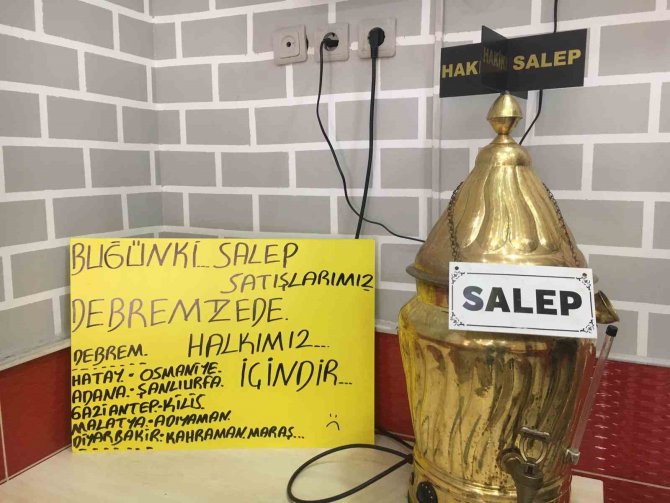 HAKİKİ SALEP
SALEP
BUGÜNKİ SALEP
SATIŞLARIMIZ
DEBREMZEDE.
HALKIMIZ...
İÇİNDİR...
DEBREM.
HATAY - OSMANİYE.
ADANA - ŞANLIURFA.
GAZİANTEP - KİLİS
MALATYA - ADIYAMAN
DİYARBAKIR - KAHRAMAN MARAŞ...